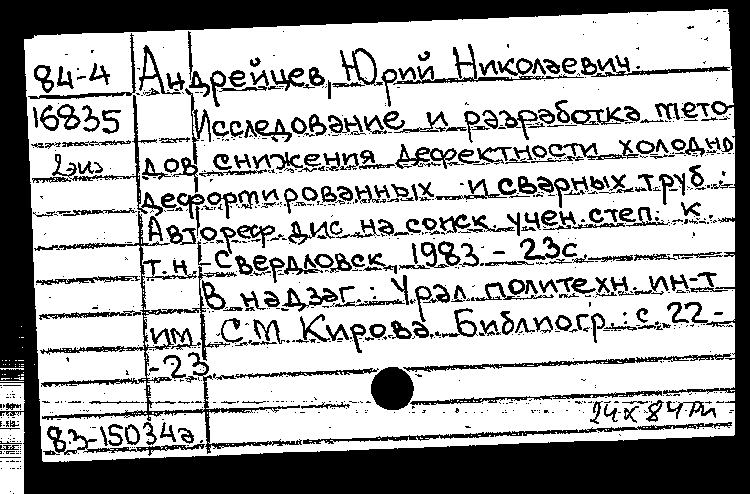 84-4 Андрейцев, Юрий Николаевич.
16835 Исследование и разработка мето-
2 экз дов снижения дефектности холодно
деформированных и сварных труб :
Автореф. дис на соиск. учен. степ. к.
т. н. - Свердловск, 1983 - 23с.
В надзаг. : Урал политехн. ин-т
им. С М Кирова. Библиогр. : с. 22-
-23.
83-15034а.